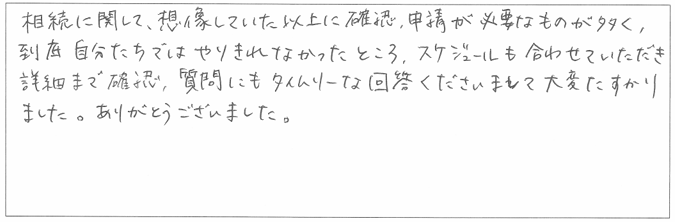 相続に関して、想像していた以上に確認、申請が必要なものが多く、
到底自分たちではやりきれなかったところ、スケジュールも合わせていただき
詳細まで確認、質問にもタイムリーな回答くださいまして大変たすかり
ました。ありがとうございました。